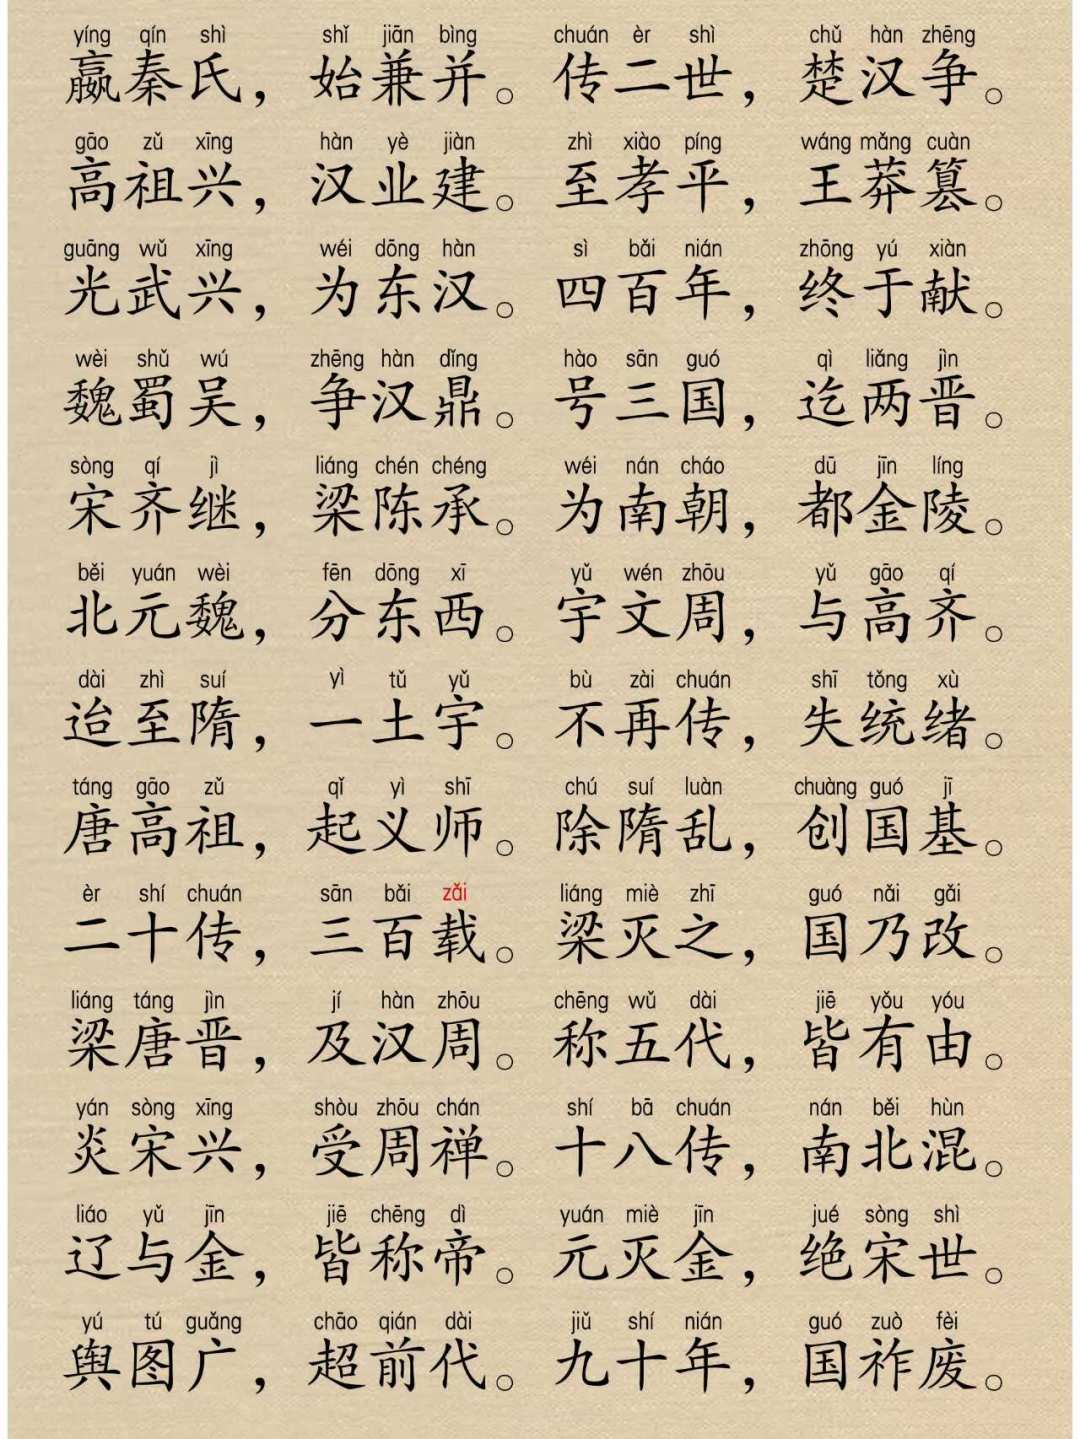 yíng qín shì shǐ jiān bìng chuán èr shì chǔ hàn zhēng
嬴秦氏，始兼并。传二世，楚汉争。
gāo zǔ xīng hàn yè jiàn zhì xiào píng wáng mǎng cuàn
高祖兴，汉业建。至孝平，王莽篡。
guāng wǔ xīng wéi dōng hàn sì bǎi nián zhōng yú xiàn
光武兴，为东汉。四百年，终于献。
wèi shǔ wú zhēng hàn dǐng hào sān guó qì liǎng jìn
魏蜀吴，争汉鼎。号三国，迄两晋。
sòng qí jì liáng chén chéng wéi nán cháo dū jīn líng
宋齐继，梁陈承。为南朝，都金陵。
běi yuán wèi fēn dōng xī yǔ wén zhōu yǔ gāo qí
北元魏，分东西。宇文周，与高齐。
dài zhì suí yì tǔ yǔ bù zài chuán shī tǒng xù
迨至隋，一土宇。不再传，失统绪。
táng gāo zǔ qǐ yì shī chú suí luàn chuàng guó jī
唐高祖，起义师。除隋乱，创国基。
èr shí chuán sān bǎi zǎi liáng miè zhī guó nǎi gǎi
二十传，三百载。梁灭之，国乃改。
liáng táng jìn jí hàn zhōu chēng wǔ dài jiē yǒu yóu
梁唐晋，及汉周。称五代，皆有由。
yán sòng xīng shòu zhōu chán shí bā chuán nán běi hùn
炎宋兴，受周禅。十八传，南北混。
liáo yǔ jīn jiē chēng dì yuán miè jīn jué sòng shì
辽与金，皆称帝。元灭金，绝宋世。
yú tú guǎng chāo qián dài jiǔ shí nián guó zuò fèi
舆图广，超前代。九十年，国祚废。